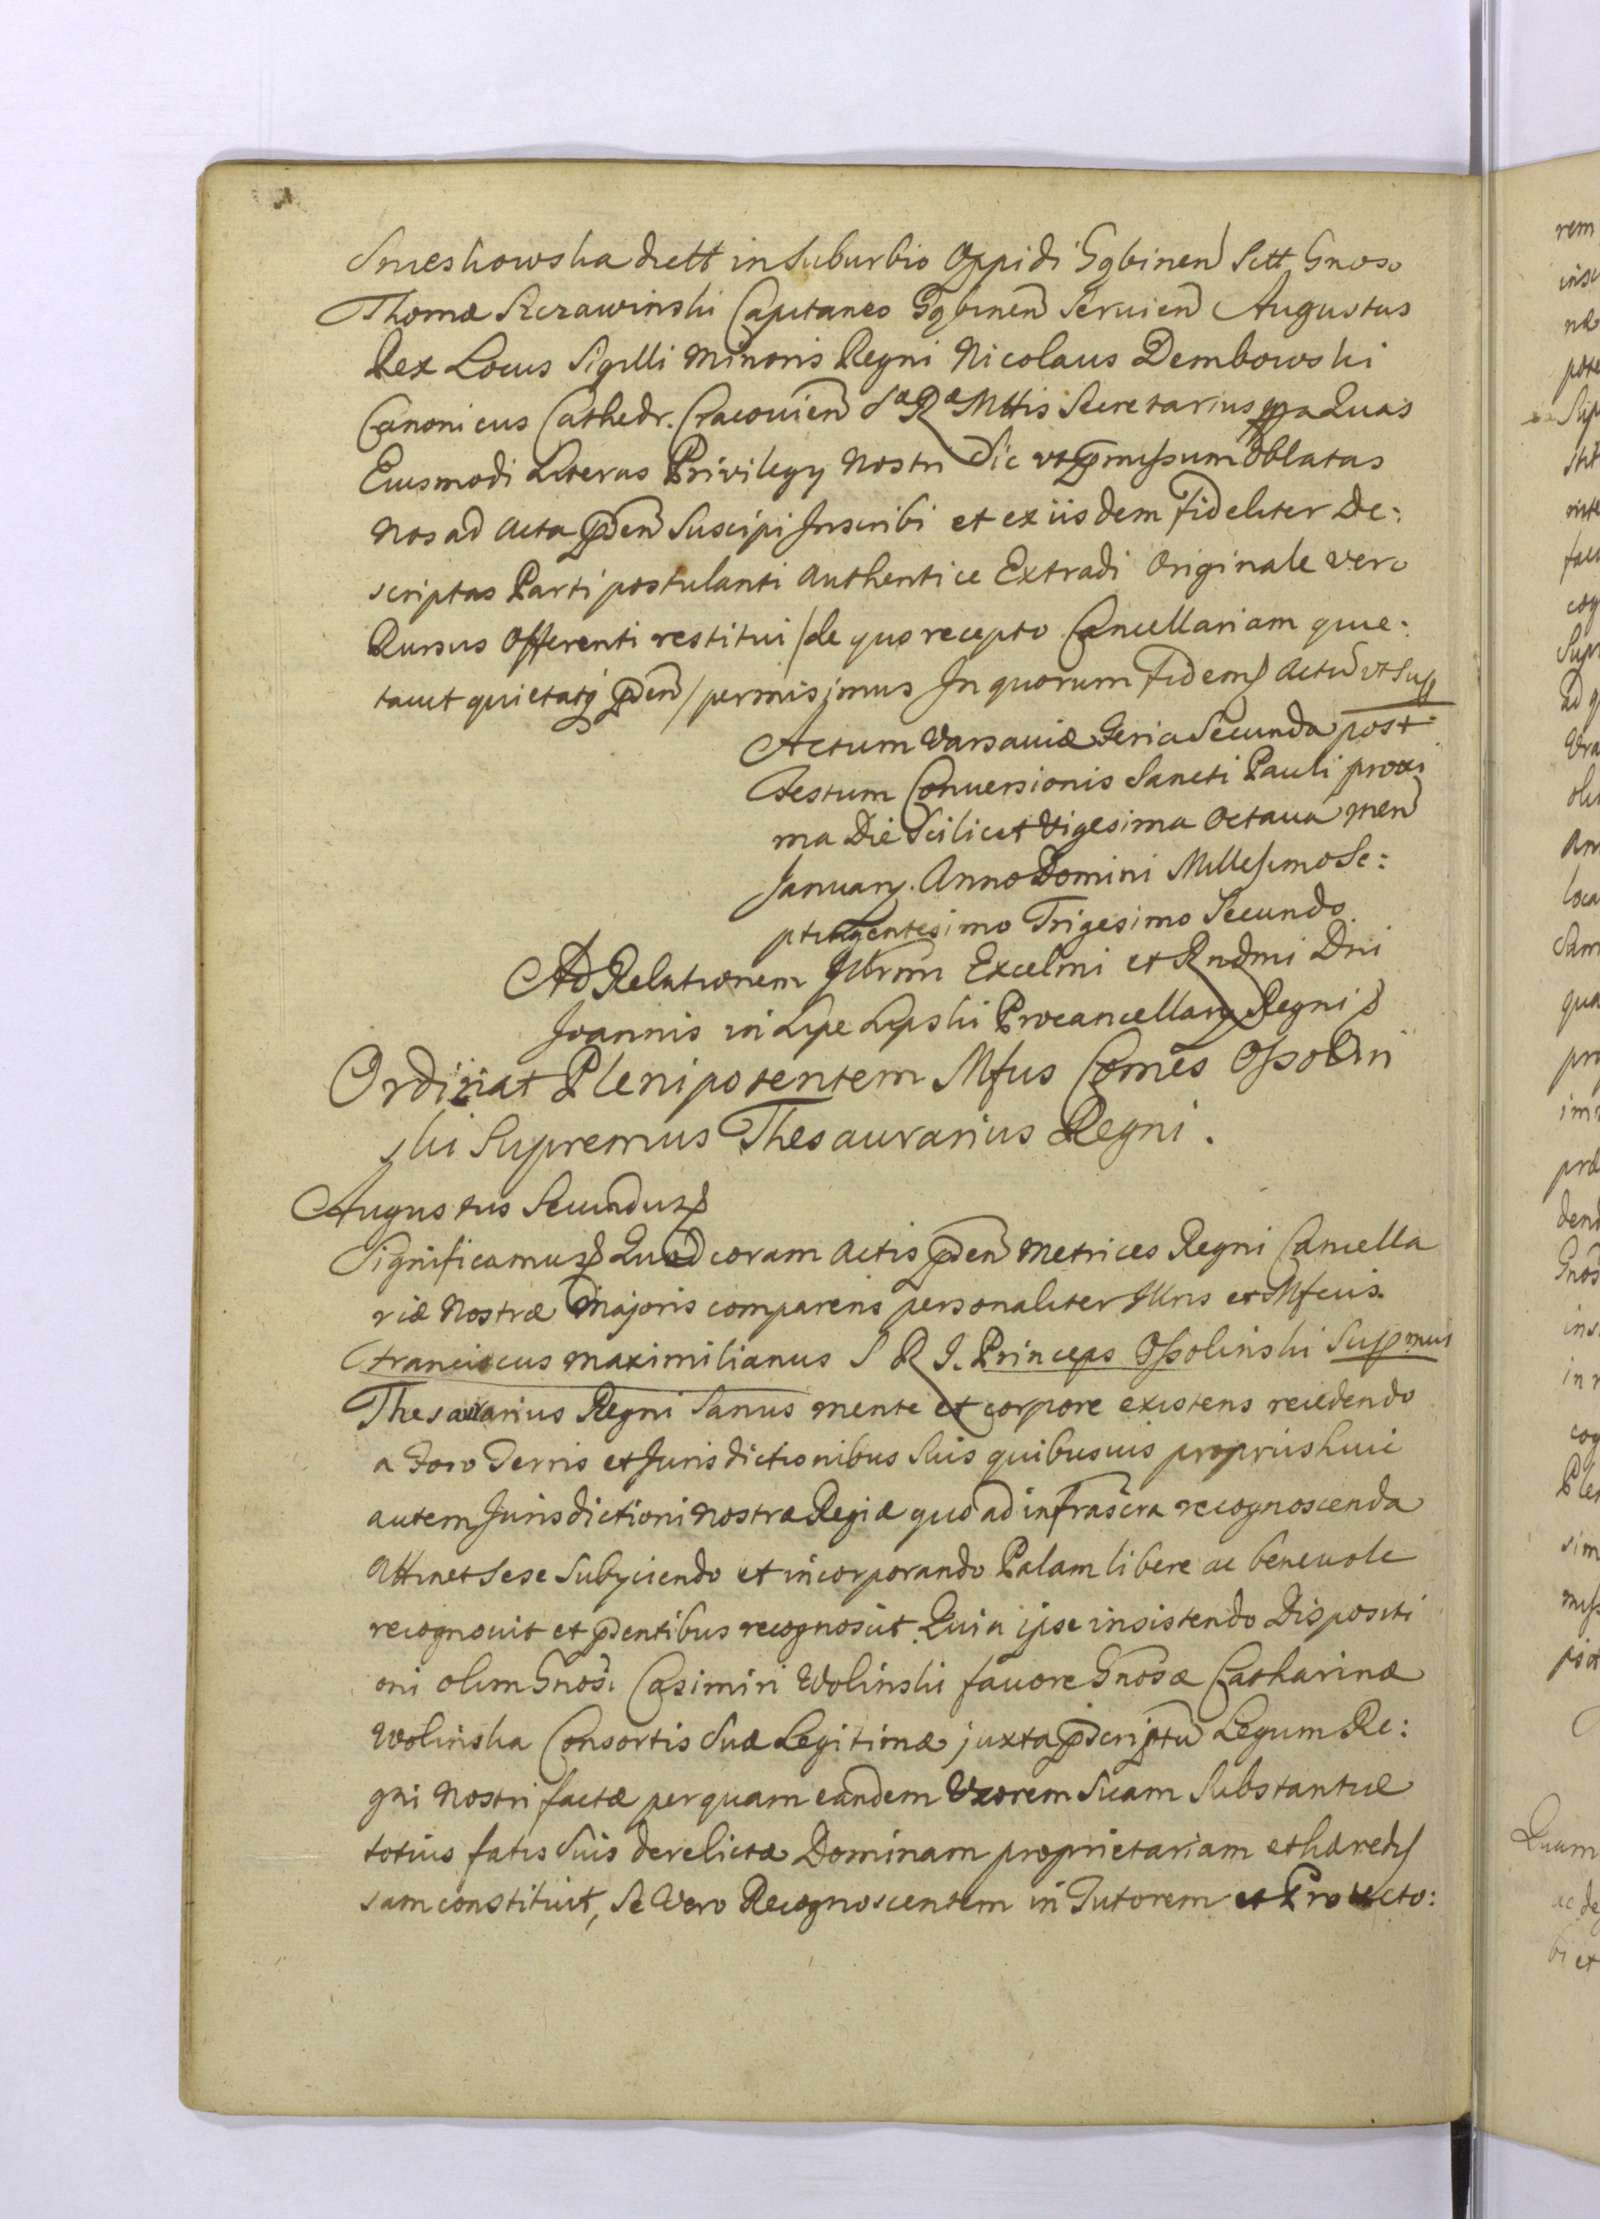 Smeskowska dictt in Suburbio Oppidi Gąbinen Sctt Gnoso
Thomæ Skrawinski Capitaneo Gąbinen Seruien Augustus
Rex Locus Sigilli Minoris Regni Nicolaus Dembowski
Canonicus Cathedr. Cracouien Sæ Ræ Mttis Secretarius mpa Quas
Eiusmodi Literas Privilegy Nostri Sic ut pmissum Oblatas
Nos ad Acta pden Suscipi Inscribi et ex iisdem Fideliter De:
scriptas Parti postulanti Authentice Extradi Originale vero
Rursus Offerenti restitui /de quo recepto Cancellariam quie:
tauit quietatq pden/ permisimus In quorum Fidem Actu ut Sup
Actum Varsauiæ Feria Secunda post
Festum Conuersionis Sancti Pauli proxi
ma Die Scilicet Vigesima Octaua Men
January. Anno Domini Millesimo Se:
ptingentesimo Trigesimo Secundo.
Ad Relationem Illrmi Excelmi et Rndmi Dni
Joannis in Lipe Lipski Procancellary Regni
Ordinat Plenipotentem Mfus Comes Ossolin
ski Supremus Thesaurarius Regni.
Augustus Secundus
Significamus Quod coram Actis pden Metrices Regni Cancella
riæ Nostræ Majoris comparens personaliter Illris et Mfcus.
Franciscus Maximilianus S R I. Princeps Ossolinski Suppmus
Thesaurarius Regni Sanus mente et corpore existens recedendo
a Foro Terris et Jurisdictionibus Suis quibusuis proprijs huic
autem Jurisdictioni Nostræ Regiæ quo ad infrascra recognoscenda
Attinet Sese Subyciendo et incorporando Palam libere ac beneuole
recognouit et pdentibus recognoscit. Quia ipse insistendo Dispositi
oni olim Gnosi Casimiri Wolinski fauore Gnosæ Catharinæ
Wolinska Consortis Suæ Legitimæ juxta pscriptu Legum Re:
gni Nostri factæ per quam eandem Uxorem Suam Substantiæ
totius fatis Suis derelictæ Dominam proprietariam et hæredis
sam constituit, Se Vero Recognoscentem in Tutorem et Protecto: